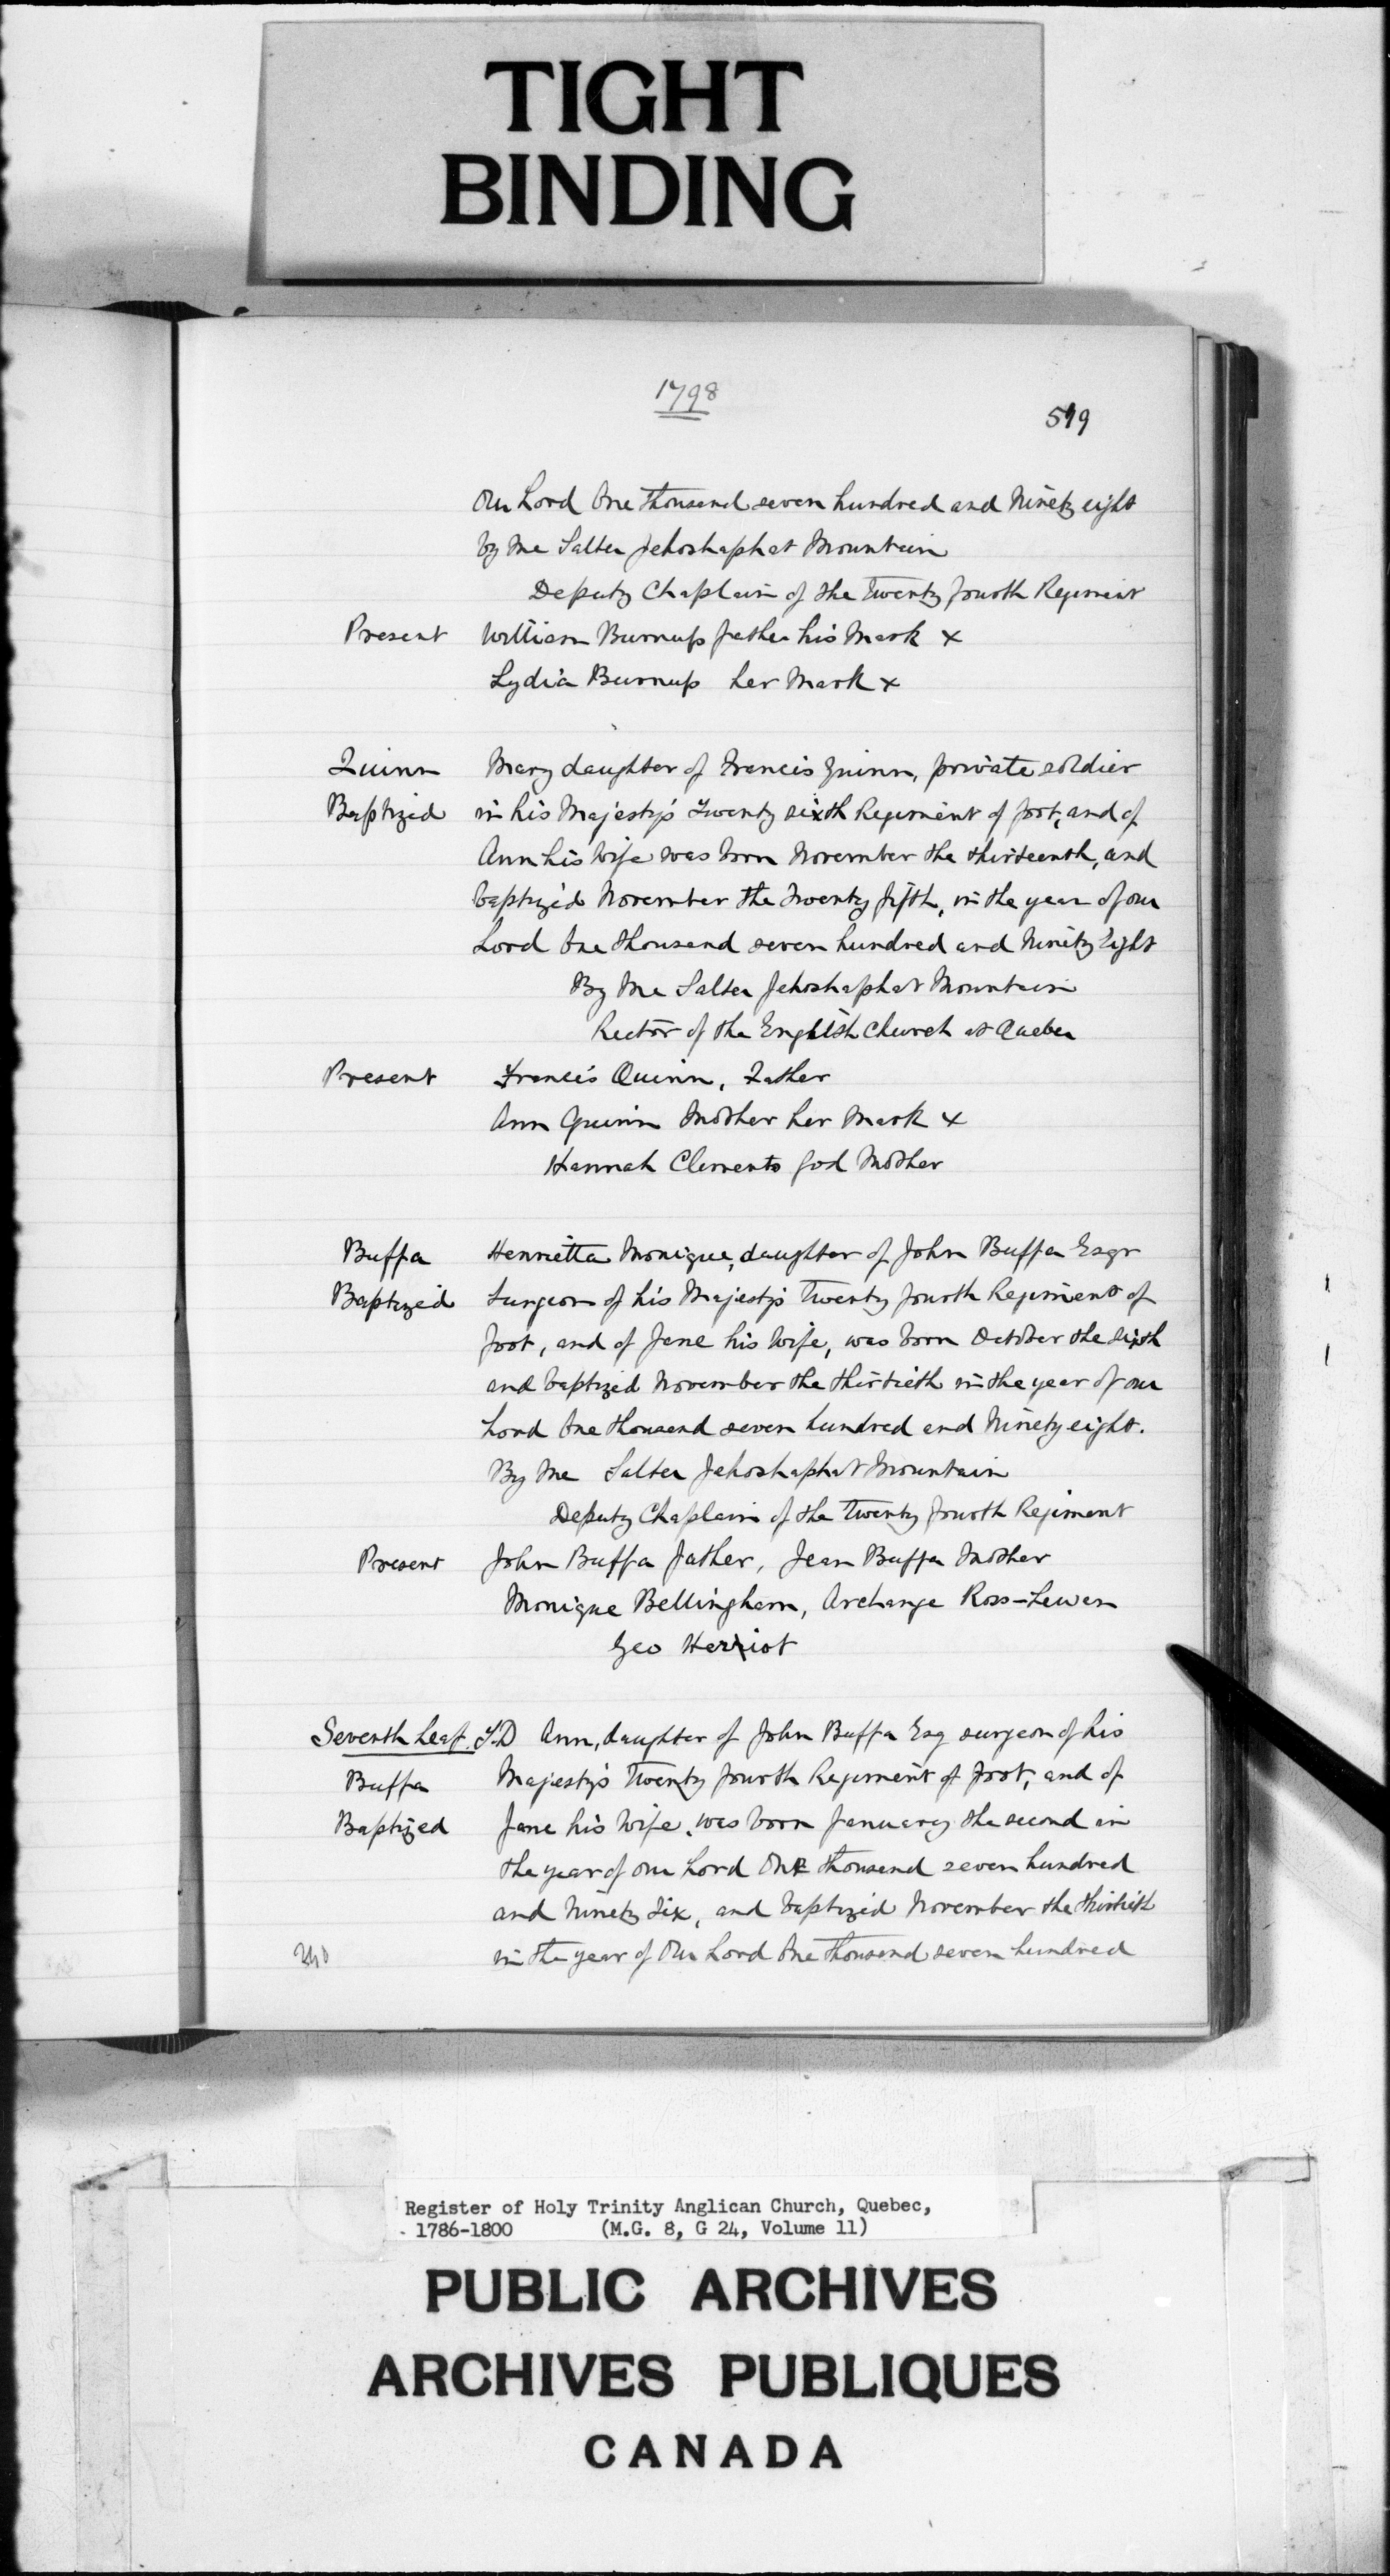 TIGHT
BINDING
1798
519
Our Lord One Thousand seven hundred and Ninety eight
by me Salter Jehoshaphat Mountain
Deputy Chaplain of the Twenty fourth Regiment
Present William Burnup father his Mark x
Lydia Burnup her Mark x
Quinn Mary daughter of Francis Quinn, private soldier
Baptized in his Majesty's Twenty sixth Regiment of foot, and of
Ann his Wife was born November the thirteenth, and
baptized November the Twenty fifth, in the year of our
Lord One thousand seven hundred and Ninety Eight
By Me Salter Jehoshaphat Mountain
Rector of the English Church at Quebec
Present Francis Quinn, Father
Ann Quinn Mother her Mark x
Hannah Clements God Mother
Buffa Henrietta Monique, daughter of John Buffa Esqr
Baptized Surgeon of his Majesty's Twenty fourth Regiment of
foot, and of Jane his Wife, was born October the sixth
and baptized November the thirtieth in the year of our
Lord One thousand seven hundred and Ninety eight.
By Me Salter Jehoshaphat Mountain
Deputy Chaplain of the Twenty fourth Regiment
Present John Buffa father, Jean Buffa Mother
Monique Bellingham, Archange Ross-Lewen
Geo Heriot
Seventh Leaf. T.D Ann, daughter of John Buffa Esq surgeon of his
Buffa Majesty's Twenty fourth Regiment of foot, and of
Baptized Jane his Wife, was born January the second in
the year of our Lord One thousand seven hundred
and Ninety Six, and baptized November the thirtieth
in the year of Our Lord One thousand seven hundred
Register of Holy Trinity Anglican Church, Quebec,
1786-1800 (M.G. 8, G 24, Volume 11)
PUBLIC ARCHIVES
ARCHIVES PUBLIQUES
CANADA